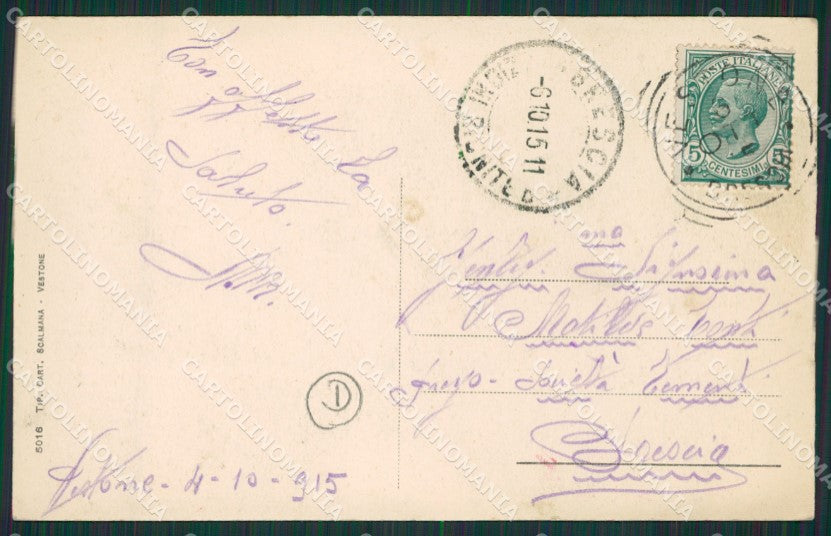 Con affetto La
Saluto.
Vestone - 4 - 10 - 915
5016 TIP. CART. SCALMANA - VESTONE
BRESCIA
-6.10.15 11
POSTE ITALIANE
5
CENTESIMI
VESTONE
BRESCIA
Gentil.ma Signorina
Matilde Conti
presso - Società Cementi
Brescia
CARTOLINOMANIA